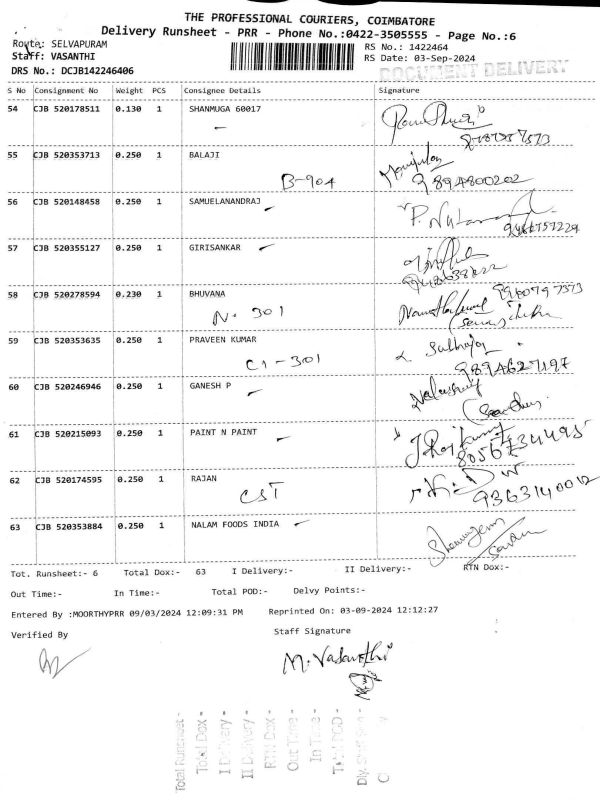 THE PROFESSIONAL COURIERS, COIMBATORE
Delivery Runsheet - PRR - Phone No.:0422-3505555 - Page No.:6
Route: SELVAPURAM
RS No.: 1422464
Staff: VASANTHI
RS Date: 03-Sep-2024
DRS No.: DCJB142246406
DOCUMENT DELIVERY
S No Consignment No Weight PCS Consignee Details Signature
54 CJB 520178511 0.130 1 SHANMUGA 60017
55 CJB 520353713 0.250 1 BALAJI
B-904 9894800202
56 CJB 520148458 0.250 1 SAMUELANANDRAJ
57 CJB 520355127 0.250 1 GIRISANKAR
58 CJB 520278594 0.230 1 BHUVANA
N- 301
59 CJB 520353635 0.250 1 PRAVEEN KUMAR
C1-301 9894627197
60 CJB 520246946 0.250 1 GANESH P
61 CJB 520215093 0.250 1 PAINT N PAINT
8056734495
62 CJB 520174595 0.250 1 RAJAN
CST 9363140012
63 CJB 520353884 0.250 1 NALAM FOODS INDIA
Tot. Runsheet:- 6 Total Dox:- 63 I Delivery:- II Delivery:- RTN Dox:-
Out Time:- In Time:- Total POD:- Delvy Points:-
Entered By :MOORTHYPRR 09/03/2024 12:09:31 PM Reprinted On: 03-09-2024 12:12:27
Verified By Staff Signature
M. Vasanthi
Total Runsheet -
Total Dox -
I Delivery -
II Delivery -
RTN Dox -
Out Time -
In Time -
Total POD -